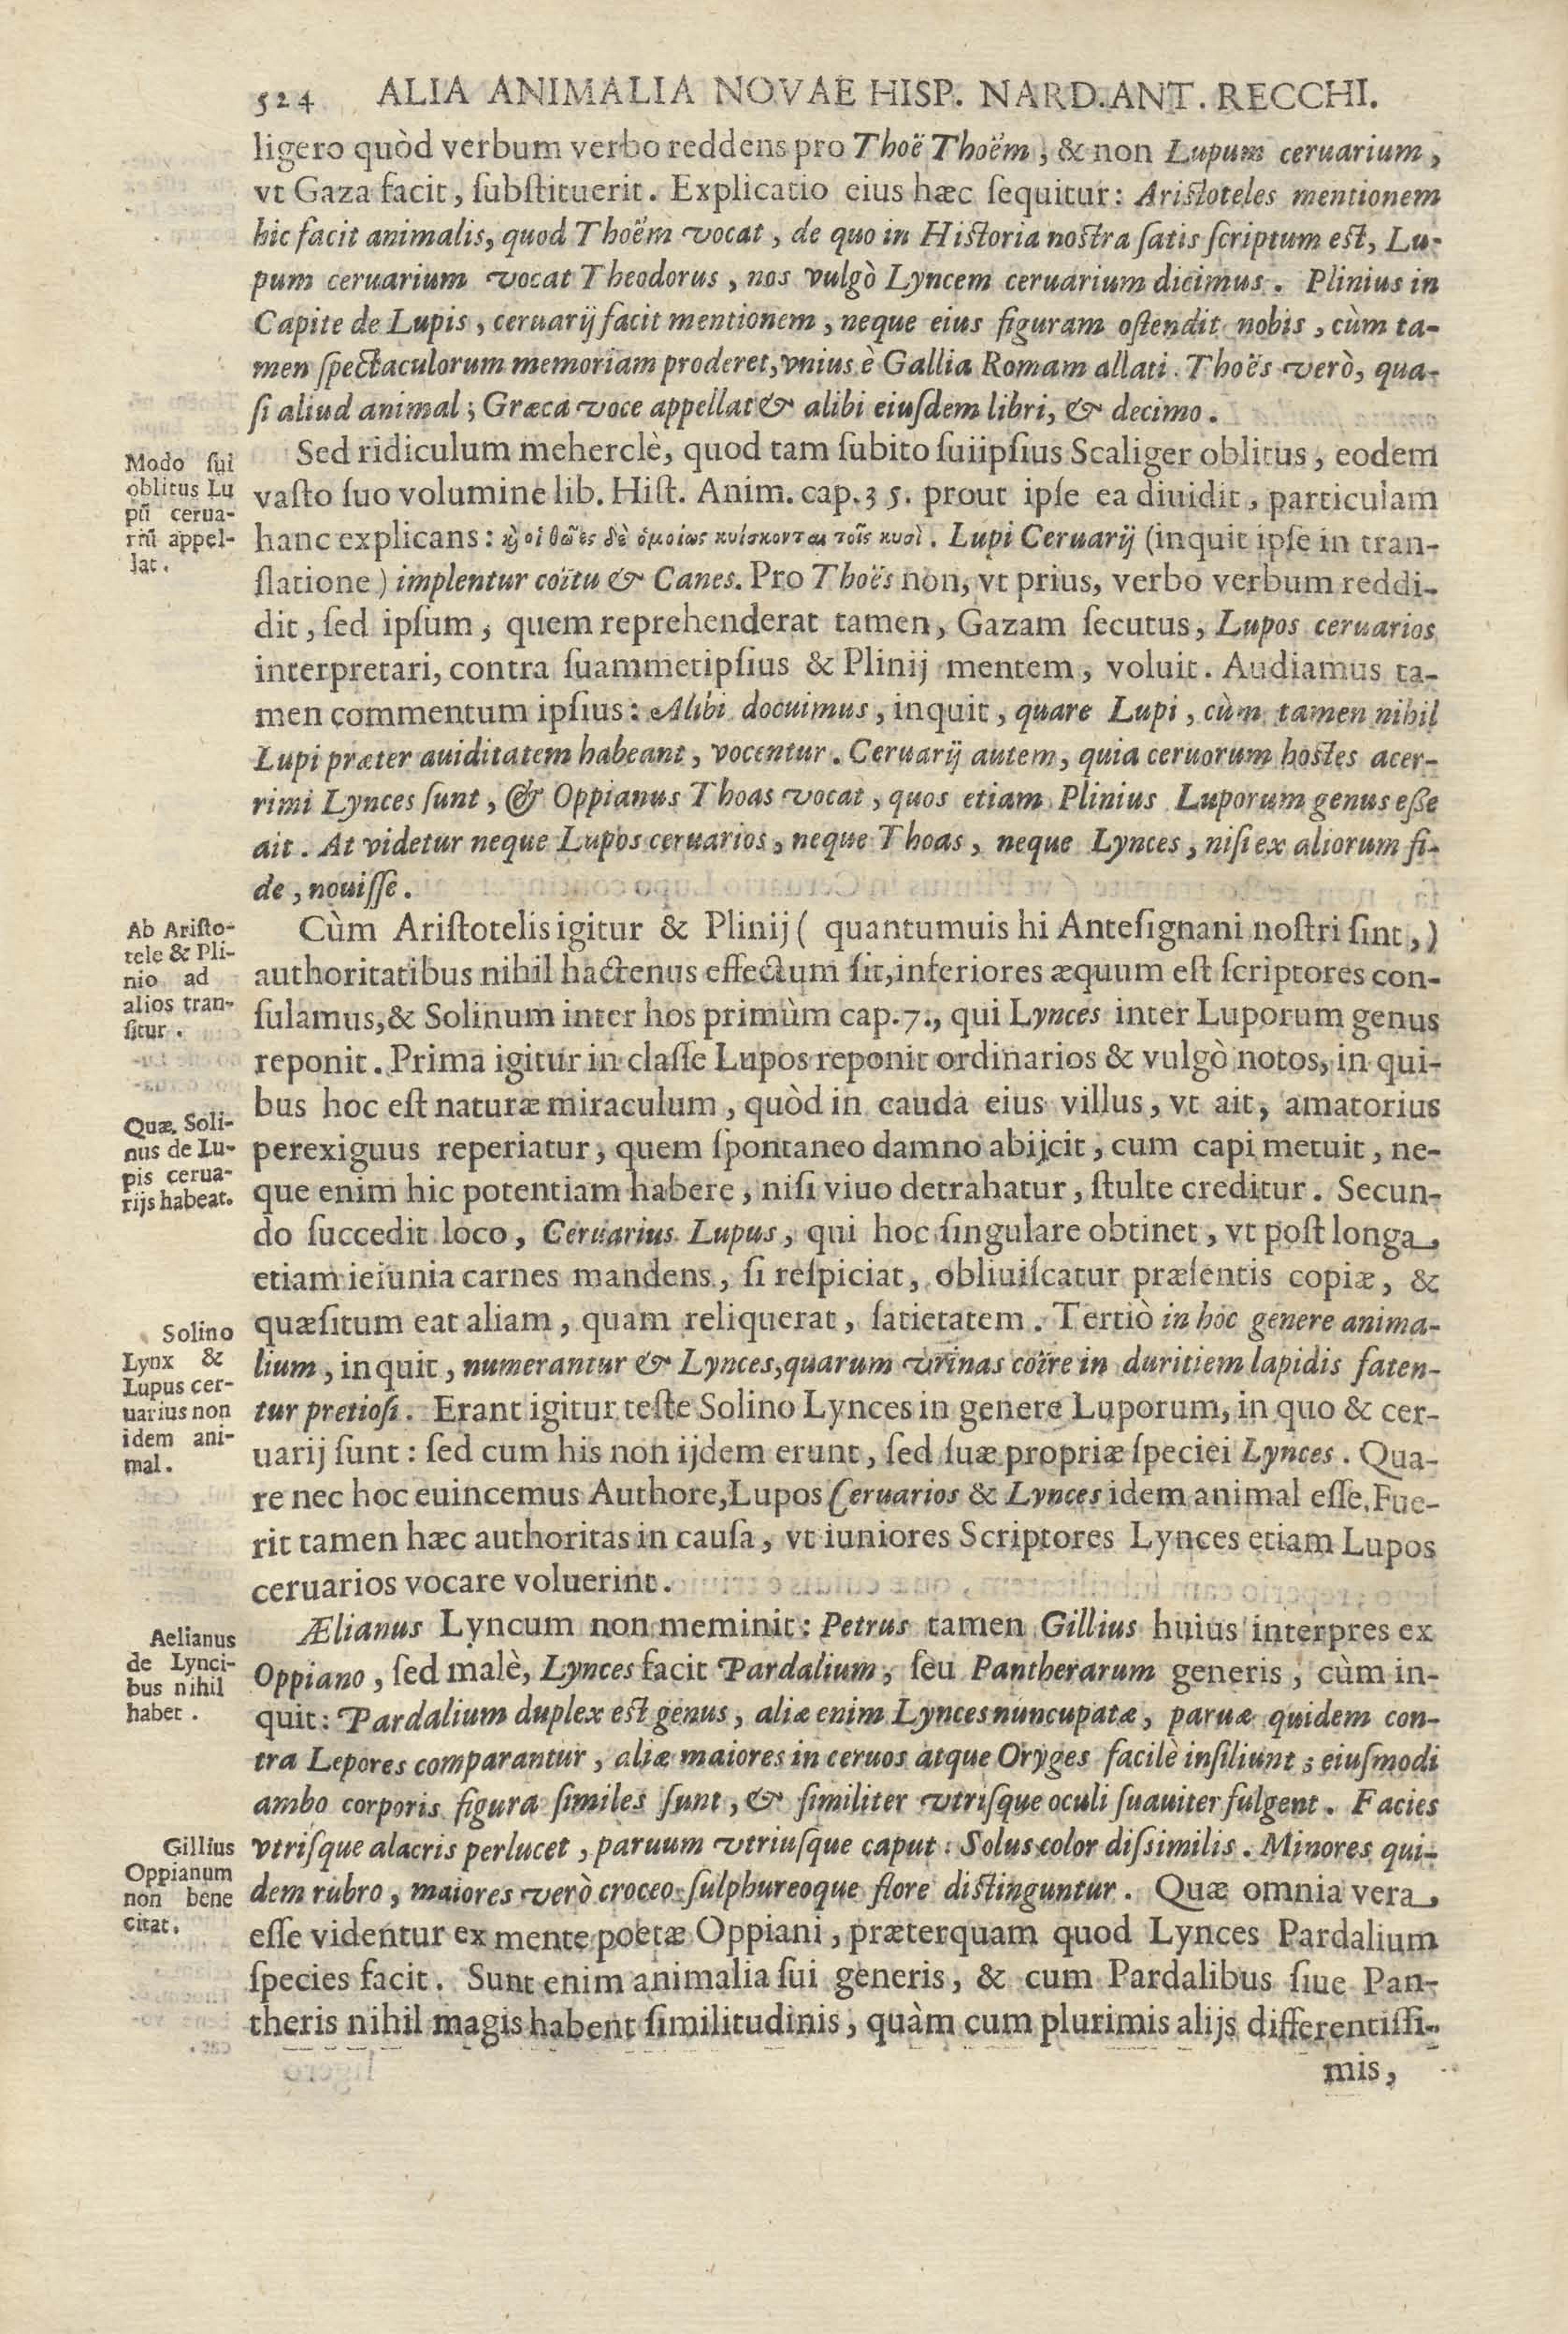 524 ALIA ANIMALIA NOVAE HISP. NARD. ANT. RECCHI.
ligero quòd verbum verbo reddens pro Thoë Thoëm, & non Lupum ceruarium,
vt Gaza facit, ſubſtituerit. Explicatio eius hæc ſequitur: Ariſtoteles mentionem
hic facit animalis, quod Thoëm vocat, de quo in Hiſtoria noſtra ſatis ſcriptum eſt, Lu-
pum ceruarium vocat Theodorus, nos vulgò Lyncem ceruarium dicimus. Plinius in
Capite de Lupis, ceruarij facit mentionem, neque eius figuram oſtendit nobis, cùm ta-
men ſpectaculorum memoriam proderet, vnius è Gallia Romam allati. Thoës verò, qua-
ſi aliud animal; Græca voce appellat & alibi eiuſdem libri, & decimo.
Modo ſui
oblitus Lu
pũ cerua-
riũ appel-
lat.
Sed ridiculum meherclè, quod tam ſubito ſuiipſius Scaliger oblitus, eodem
vaſto ſuo volumine lib. Hiſt. Anim. cap. 35. prout ipſe ea diuidit, particulam
hanc explicans: ϗ οἱ θῶες δὲ ὁμοίως κυίσκονται τοῖς κυσὶ. Lupi Ceruarij (inquit ipſe in tran-
ſlatione) implentur coïtu & Canes. Pro Thoës non, vt prius, verbo verbum reddi-
dit, ſed ipſum, quem reprehenderat tamen, Gazam ſecutus, Lupos ceruarios
interpretari, contra ſuammetipſius & Plinij mentem, voluit. Audiamus ta-
men commentum ipſius: Alibi docuimus, inquit, quare Lupi, cùm tamen nihil
Lupi præter auiditatem habeant, vocentur. Ceruarij autem, quia ceruorum hoſtes acer-
rimi Lynces ſunt, & Oppianus Thoas vocat, quos etiam Plinius Luporum genus eße
ait. At videtur neque Lupos ceruarios, neque Thoas, neque Lynces, niſi ex aliorum fi-
de, nouiſſe.
Ab Ariſto-
tele & Pli-
nio ad
alios tran-
ſitur.
Cùm Ariſtotelis igitur & Plinij (quantumuis hi Anteſignani noſtri ſint,)
authoritatibus nihil hactenus effectum ſit, inferiores æquum eſt ſcriptores con-
ſulamus, & Solinum inter hos primùm cap. 7., qui Lynces inter Luporum genus
reponit. Prima igitur in claſſe Lupos reponit ordinarios & vulgò notos, in qui-
bus hoc eſt naturæ miraculum, quòd in cauda eius villus, vt ait, amatorius
Quæ Soli-
nus de Lu-
pis cerua-
rijs habeat.
perexiguus reperiatur, quem ſpontaneo damno abijcit, cum capi metuit, ne-
que enim hic potentiam habere, niſi viuo detrahatur, ſtulte creditur. Secun-
do ſuccedit loco, Ceruarius Lupus, qui hoc ſingulare obtinet, vt poſt longa
etiam ieiunia carnes mandens, ſi reſpiciat, obliuiſcatur præſentis copiæ, &
quæſitum eat aliam, quam reliquerat, ſatietatem. Tertiò in hoc genere anima-
Solino
Lynx &
Lupus cer-
uarius non
idem ani-
mal.
lium, inquit, numerantur & Lynces, quarum vrinas coïre in duritiem lapidis faten-
tur pretioſi. Erant igitur teſte Solino Lynces in genere Luporum, in quo & cer-
uarij ſunt: ſed cum his non ijdem erunt, ſed ſuæ propriæ ſpeciei Lynces. Qua-
re nec hoc euincemus Authore, Lupos Ceruarios & Lynces idem animal eſſe. Fue-
rit tamen hæc authoritas in cauſa, vt iuniores Scriptores Lynces etiam Lupos
ceruarios vocare voluerint.
Aelianus
de Lynci-
bus nihil
habet.
Ælianus Lyncum non meminit: Petrus tamen Gillius huius interpres ex
Oppiano, ſed malè, Lynces facit Pardalium, ſeu Pantherarum generis, cùm in-
quit: Pardalium duplex eſt genus, aliæ enim Lynces nuncupatæ, paruæ quidem con-
tra Lepores comparantur, aliæ maiores in ceruos atque Oryges facilè inſiliunt; eiuſmodi
ambo corporis figura ſimiles ſunt, & ſimiliter vtriſque oculi ſuauiter fulgent. Facies
Gillius
Oppianum
non bene
citat.
vtriſque alacris perlucet, paruum vtriuſque caput: Solus color diſsimilis. Minores qui-
dem rubro, maiores verò croceo ſulphureoque flore diſtinguntur. Quæ omnia vera
eſſe videntur ex mente poetæ Oppiani, præterquam quod Lynces Pardalium
ſpecies facit. Sunt enim animalia ſui generis, & cum Pardalibus ſiue Pan-
theris nihil magis habent ſimilitudinis, quàm cum plurimis alijs differentiſſi-
mis,